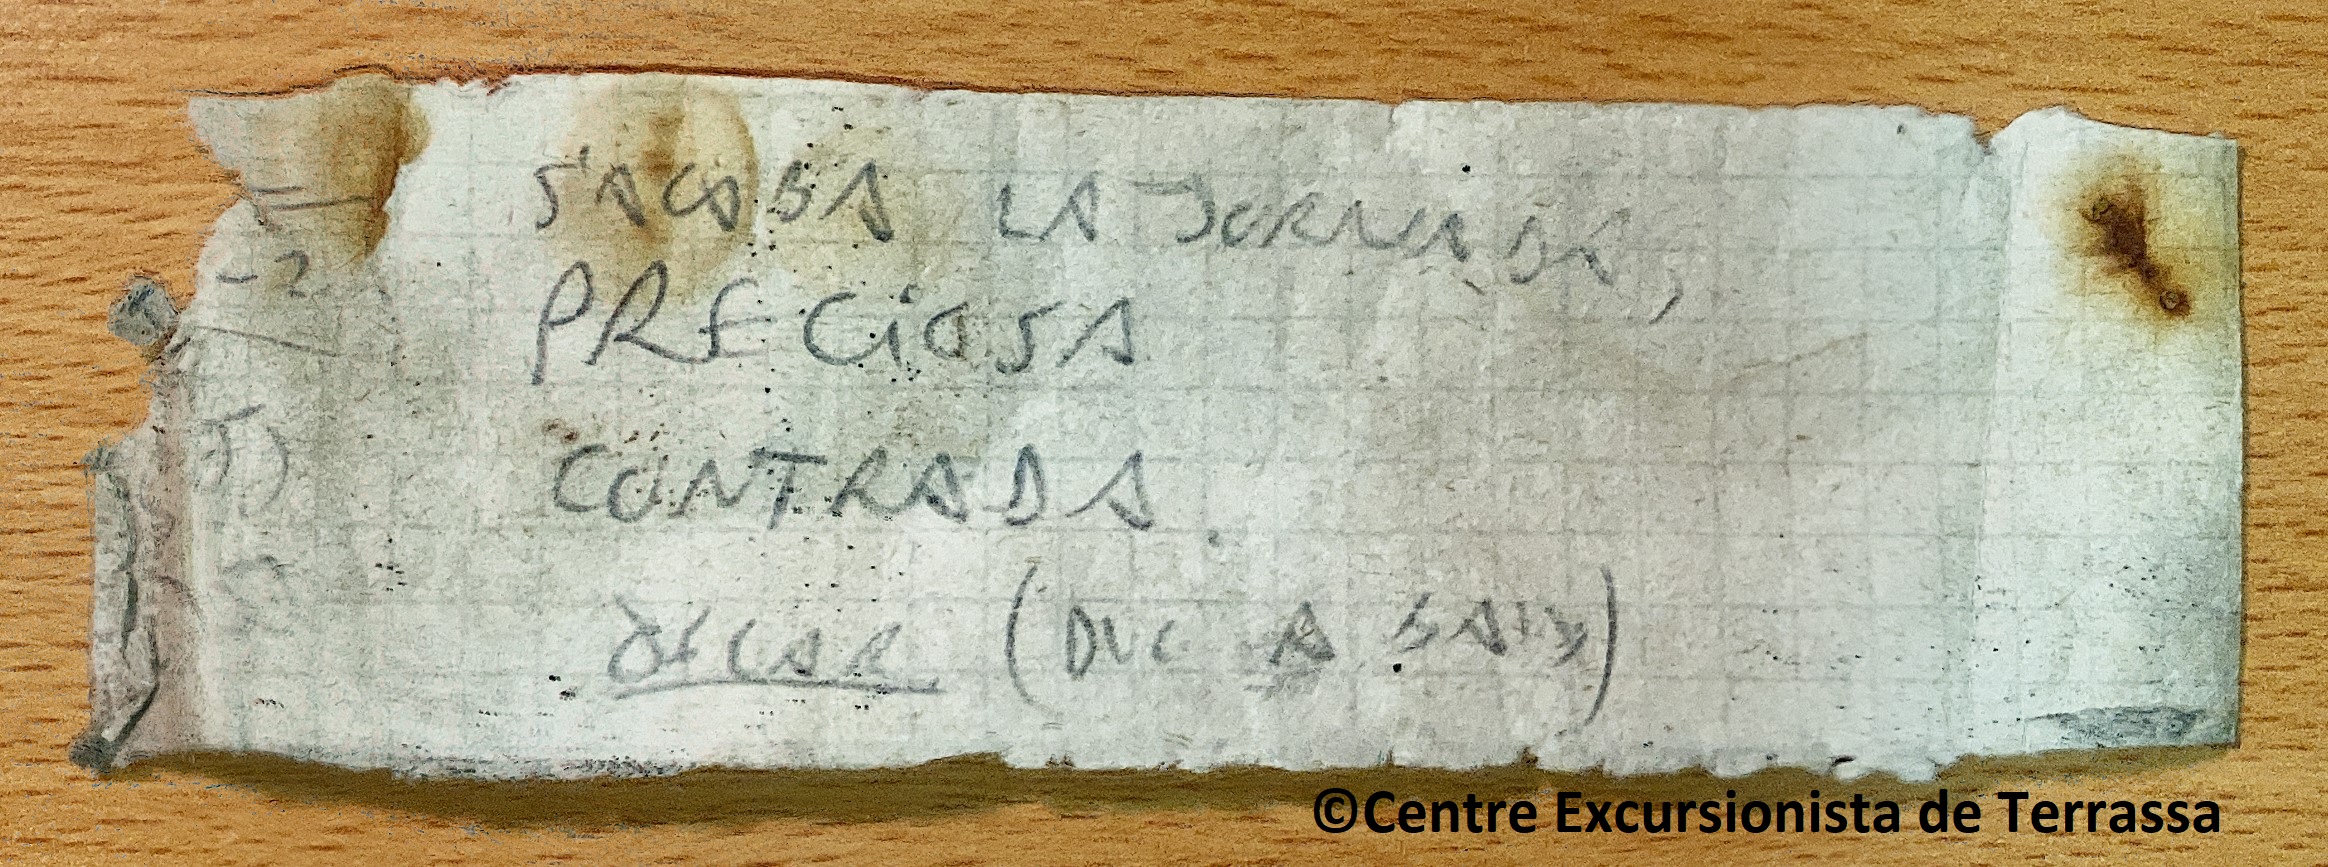 S'ACABA LA JORNADA,
PRECIOSA
CONTRADA.
ÒSCAR (DUC A SAIS)
©Centre Excursionista de Terrassa